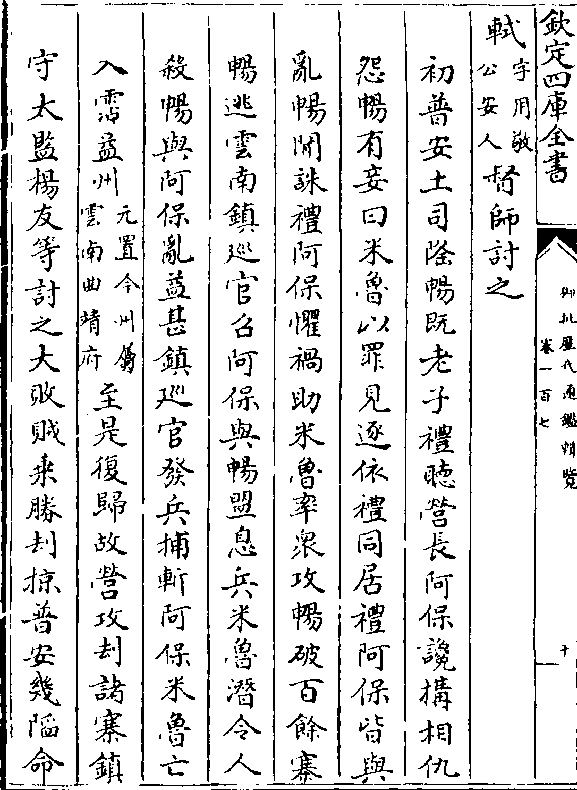 欽定四庫全書
御批歷代通鑑輯覽
卷一百七
十
軾字用敬公安人督師討之
初普安土司隆暢既老子禮聽營長阿保讒搆相仇
怨暢有妾曰米魯以罪見逐依禮同居禮阿保皆與
亂暢聞誅禮阿保懼禍助米魯率衆攻暢破百餘寨
暢逃雲南鎮巡官召阿保與暢盟息兵米魯潛令人
殺暢與阿保亂益甚鎮巡官發兵捕斬阿保米魯亡
入霑益州元置今州屬雲南曲靖府至是復歸故營攻刦諸寨鎮
守太監楊友等討之大敗賊乗勝刦掠普安幾陷命